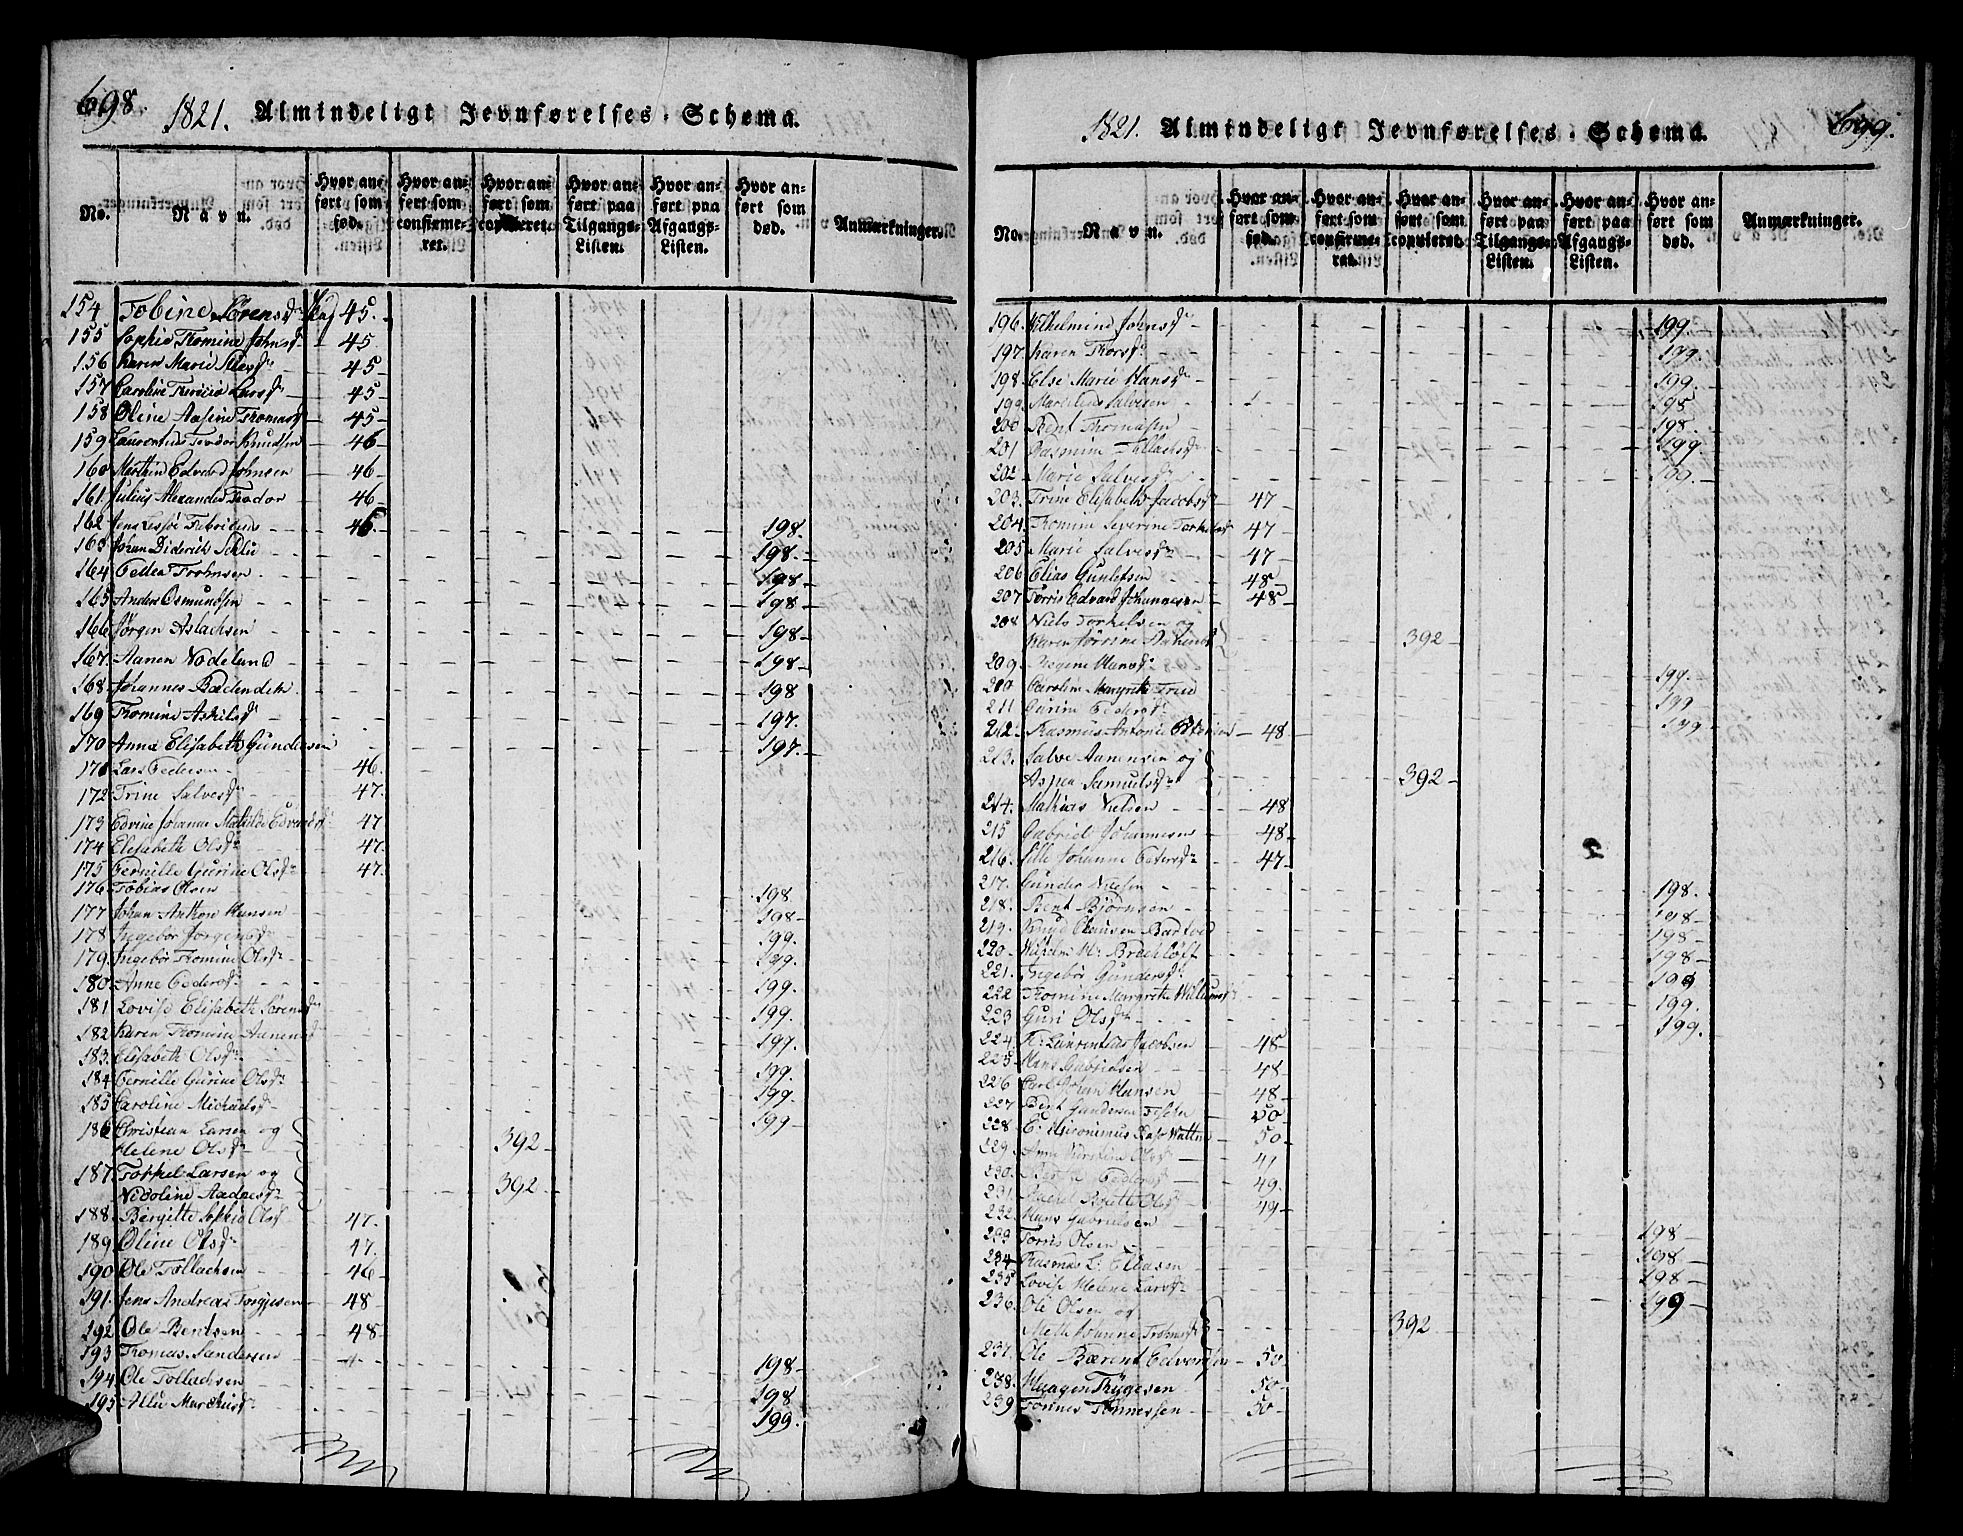 698.
1821. Almindeligt Jevnførelses-Schema.
No. Navn. Hvor anført som fød. Hvor anført som confirmeret. Hvor anført som copuleret. Hvor anført paa Tilgangs-Listen. Hvor anført paa Afgangs-Listen. Hvor anført som død. Anmærkninger.
154 Tobine Sørensdr 45.
155 Sophie Tomine Johnsdr 45
156 Karen Marie 45
157 Caroline Larsdr 45
158 Oline Aasine Thomasdr 45
159 Laurentius Teodor Knudsen 46
160 Morthen Edvard Johnsen 46
161. Julius Alexander Teodor 46
162 Jens 46 198.
163 Johan Diderich 198.
164 Peder Trohnsen 198
165 Anders Osmundsen 198
166 Jørgen Aslachsen 198
167. Aanen Nodeland 198
168. Johannes Bødendik 198
169 Tomine Askilsdr 197.
170 Anna Elisabeth Gundersen 197.
171 Lars Pedersen 46.
172 Trine Salvesdr 47.
173 Edvine Johanne Mathilde 47
174 Elisabeth Olsdr 47.
175 Pernille Gurine Olsdr 47.
176 Tobias Olsen 198
177 Johan Anthon Hansen 198
178 Ingebør Jørgensdr 199.
179. Ingebør Tomine Olsdr 199.
180. Anne Pedersdr 199.
181 Lovise Elisabeth Sørensdr 199.
182 Karen Tomine Aanensdr 197.
183. Elisabeth Olsdr 199.
184 Pernille Gurine Olsdr 199.
185 Caroline Michaelsdr 199
186 Christian Larsen og
Helene Olsdr 392
187. Torkel Larsen og
Nicoline Aadnesdr 392
188. Bergitte Sophie Olsdr 47.
189 Oline Olsdr 47.
190 Ole Tollachsen 46
191. Jens Andreas Torgjesen 48
192 Ole Bentsen 48
193 Thomas Sandersen 198
194 Ole Tollachsen 198
195 199.
1821. Almindeligt Jevnførelses-Schema. 699.
No. Navn. Hvor anført som fød. Hvor anført som confirmeret. Hvor anført som copuleret. Hvor anført paa Tilgangs-Listen. Hvor anført paa Afgangs-Listen. Hvor anført som død. Anmærkninger.
196 Wilhelmine Johnsdr 199.
197. Karen Thorsdr 199.
198 Else Marie Hansdr 199.
199 Salvesen 198
200 Bent Thomassen 198.
201 Rasmine Tollachsdr 199
202 Marie Salvesdr 199.
203. Trine Elisabeth Jacobsdr 47
204. Tomine Severine Torkelsdr 47
205 Marie Salvesdr 47
206 Elias Gunlefsen 48
207 Torris Edvard Johannesen 48
208 Niels Torkelsen og
Karen Jørrine 392
209. Regine Hansdr 199.
200 Caroline Margrethe 199
211 Gurine Pedersdr 199
212 Rasmus Antonie Petersen 48
213. Salve Aanensen og
Aspea Samuelsdr 392
214. Mathias Nielsen 48
215 Gabriel Johannesen 48
216. Sille Johanne Petersdr 47
217. Gunder Nielsen 198.
218. Bent Bjørnsen 198
219. Knud Clausen 198
220. 198
221. Ingebør Gundersdr 199
222 Tomine Margrethe Willumsdr 199
223 Guri Olsdr 199.
224. Laurentius Jacobsen 48
225 Hans Gabrielsen 48
226 Carl Johan Hansen 48
227 Bent Gundersen 50
228 50
229. Anne Olsdr 49
230. Pedersdr 49
231. Rachel Olsdr 49
232. Hans Gabrielsen 198
233 Torris Olsen 198
234 Rasmus L. Clausen 198
235 Lovise Helene Larsdr 199
236. Ole Olsen og
Mette Johanne 392
237. Ole Bærent Edvardsen 50
238. Haagen Thygesen 50
239 Tønnes Tønnessen 50